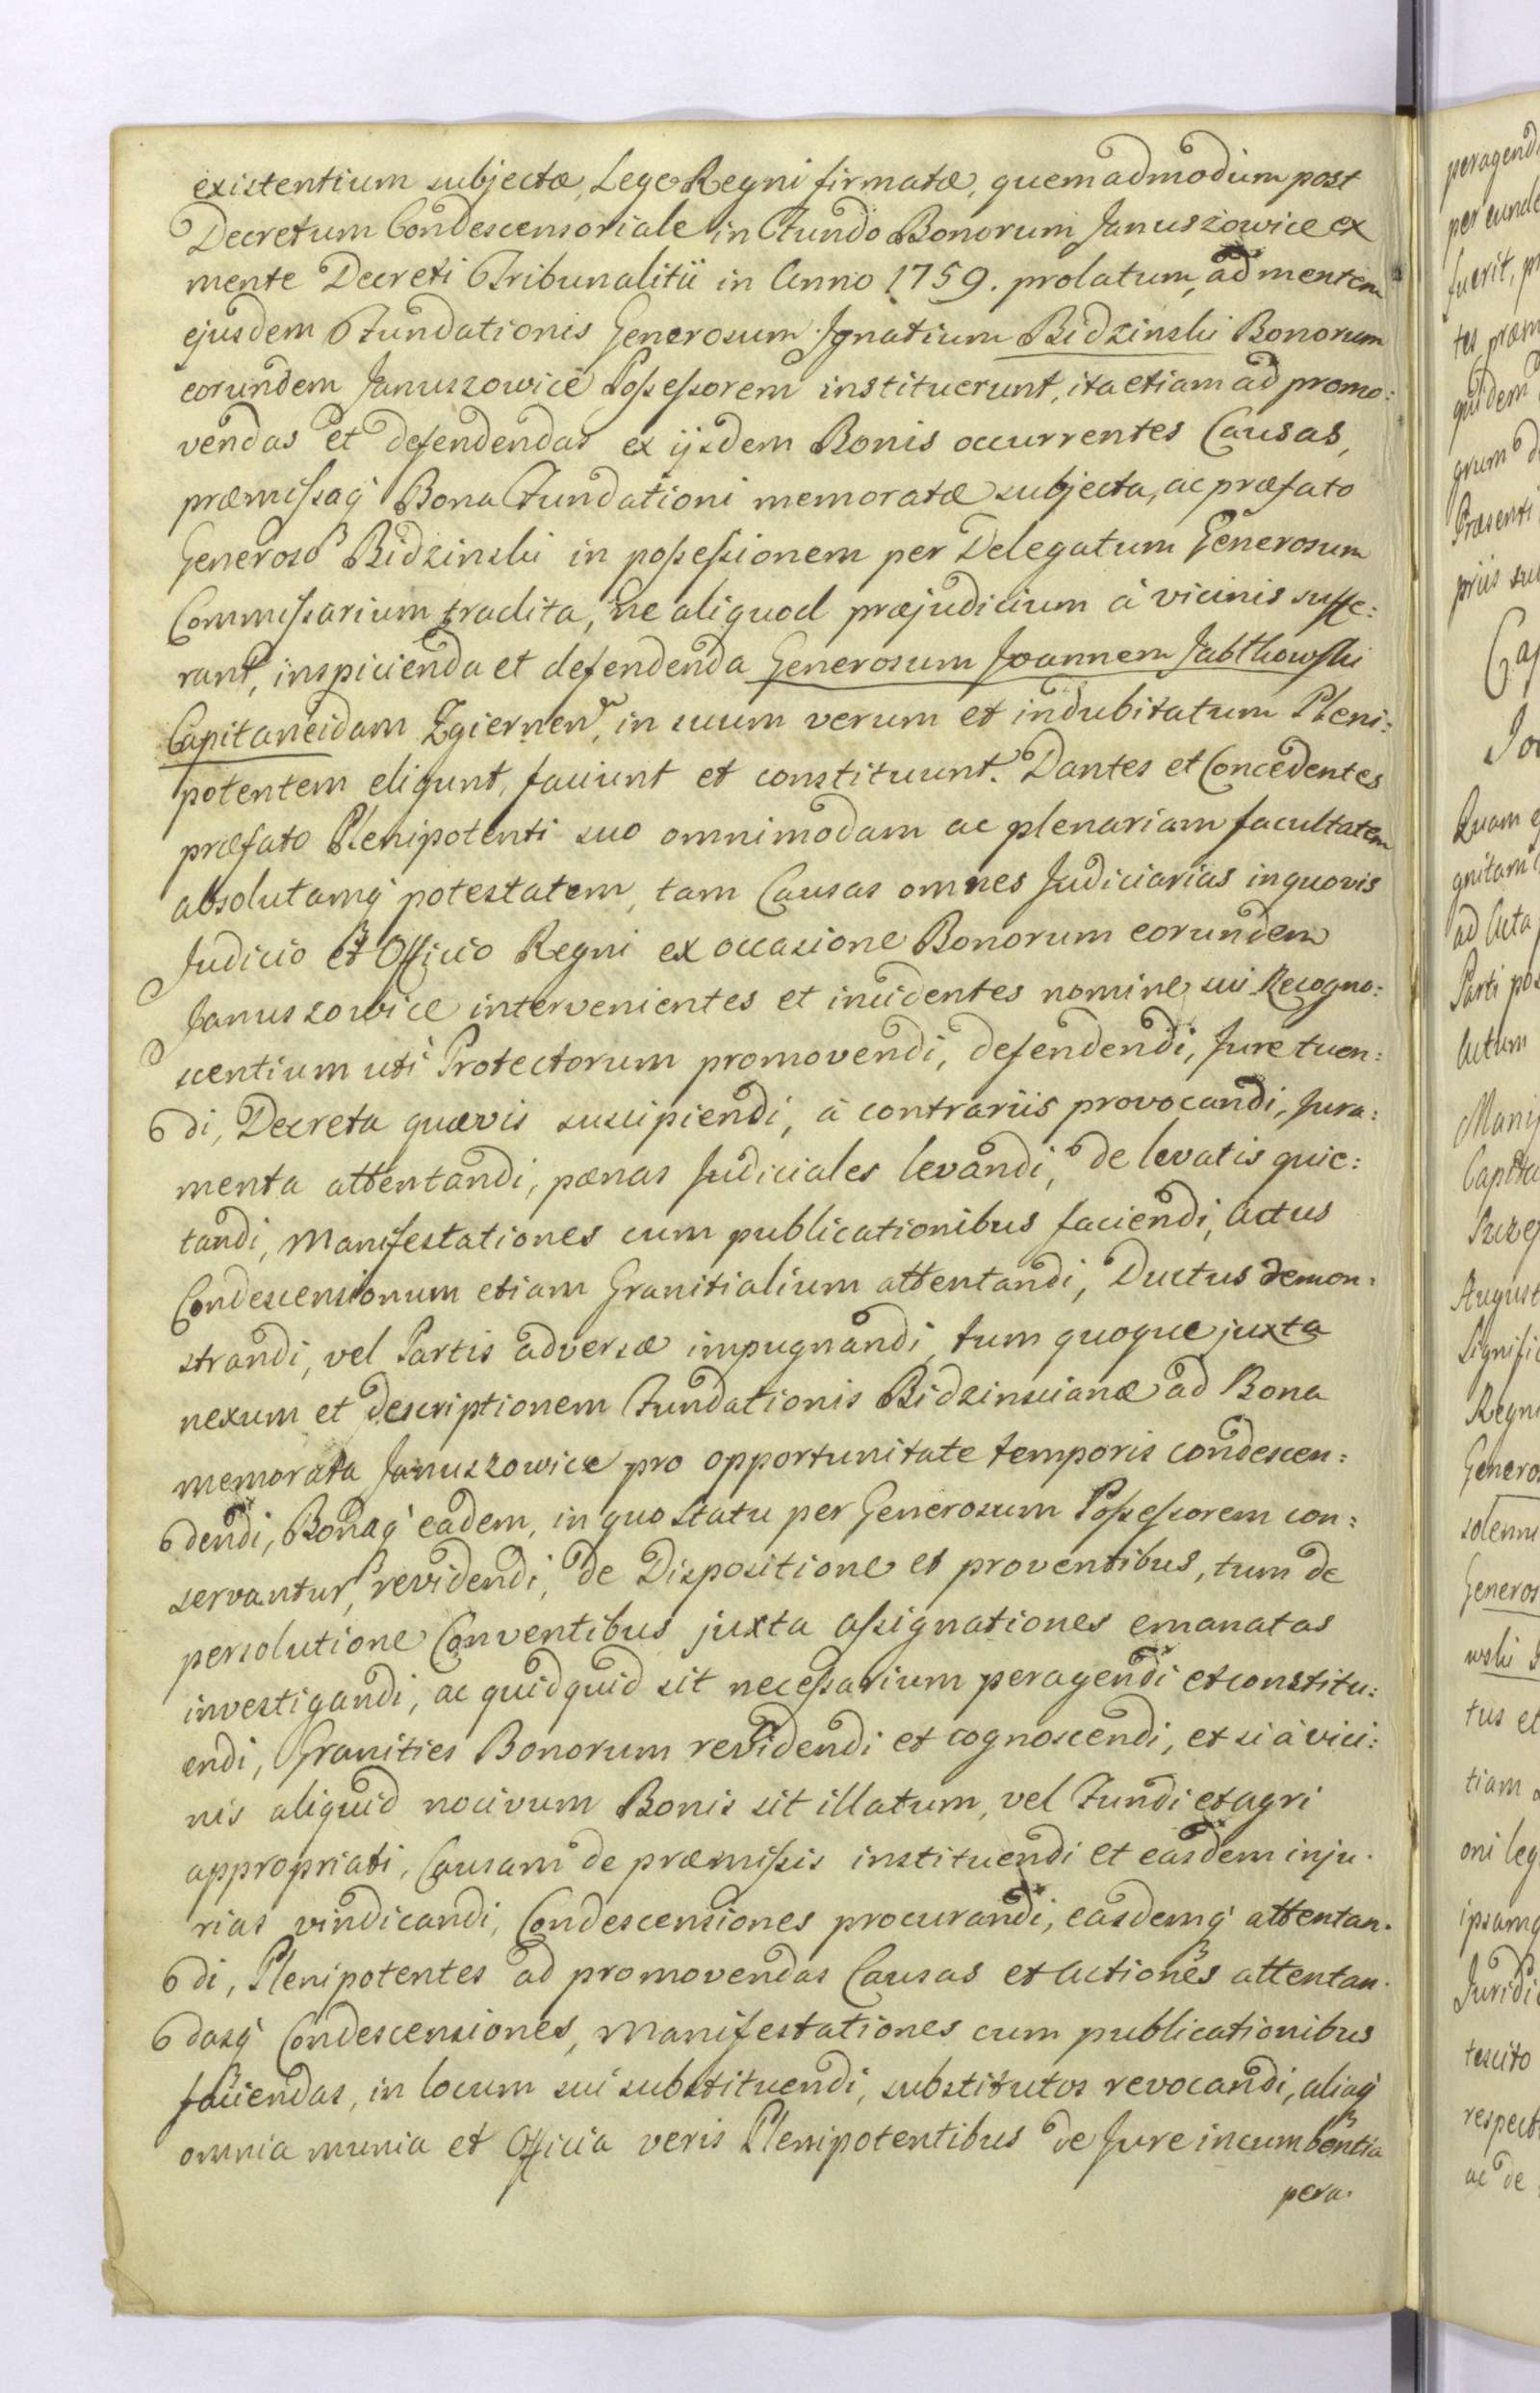 existentium subjectæ, Lege Regni firmatæ, quemadmodum post
Decretum Condescensoriale in Fundo Bonorum Januszowice ex
mente Decreti Tribunalitii in Anno 1759. prolatum, ad mentem
ejusdem Fundationis Generosum Ignatium Bidzinski Bonorum
eorundem Januszowice Possessorem instituerunt, ita etiam ad promo:
vendas et defendendas ex ijsdem Bonis occurrentes Causas,
præmissaq́ Bona Fundationi memoratæ subjecta, ac præfato
Generoso Bidzinski in possessionem per Delegatum Generosum
Commissarium tradita, ne aliquod præjudicium à vicinis suffe:
rant, inspicienda et defendenda Generosum Joannem Jabłkowski
Capitaneidam Zgiernen, in suum verum et indubitatum Pleni:
potentem eligunt, faciunt et constituunt. Dantes et Concedentes
præfato Plenipotenti suo omnimodam ac plenariam facultatem
absolutamq́ potestatem, tam Causas omnes Judiciarias in quovis
Judicio et Officio Regni ex occasione Bonorum eorundem
Januszowice intervenientes et incidentes nomine sui Recogno:
scentium uti Protectorum promovendi, defendendi, Jure tuen:
di, Decreta quævis suscipiendi, à contrariis provocandi, Jura:
menta attentandi, pænas Judiciales levandi, de levatis quie:
tandi, Manifestationes cum publicationibus faciendi, Actus
Condescensionum etiam Granitialium attentandi, Ductus demon:
strandi, vel Partis adversæ impugnandi, tum quoque juxta
nexum et descriptionem Fundationis Bidzinscianæ ad Bona
memorata Januszowice pro opportunitate temporis condescen:
dendi, Bonaq́ eadem, in quo statu per Generosum Possessorem con:
servantur, revidendi, de Dispositione et proventibus, tum de
persolutione Conventibus juxta assignationes emanatas
investigandi, ac quidquid sit necessarium peragendi et constitu:
endi, Granities Bonorum revidendi et cognoscendi, et si à vici:
nis aliquid nocivum Bonis sit illatum, vel Fundi et agri
appropriati, Causam de præmissis instituendi et easdem inju:
rias vindicandi, Condescensiones procurandi, easdemq́ attentan:
di, Plenipotentes ad promovendas Causas et Actiones attentan:
dasq́ Condescensiones, Manifestationes cum publicationibus
faciendas, in locum sui substituendi, substitutos revocandi, aliaq́
omnia munia et Officia veris Plenipotentibus de Jure incumbentia
pera: